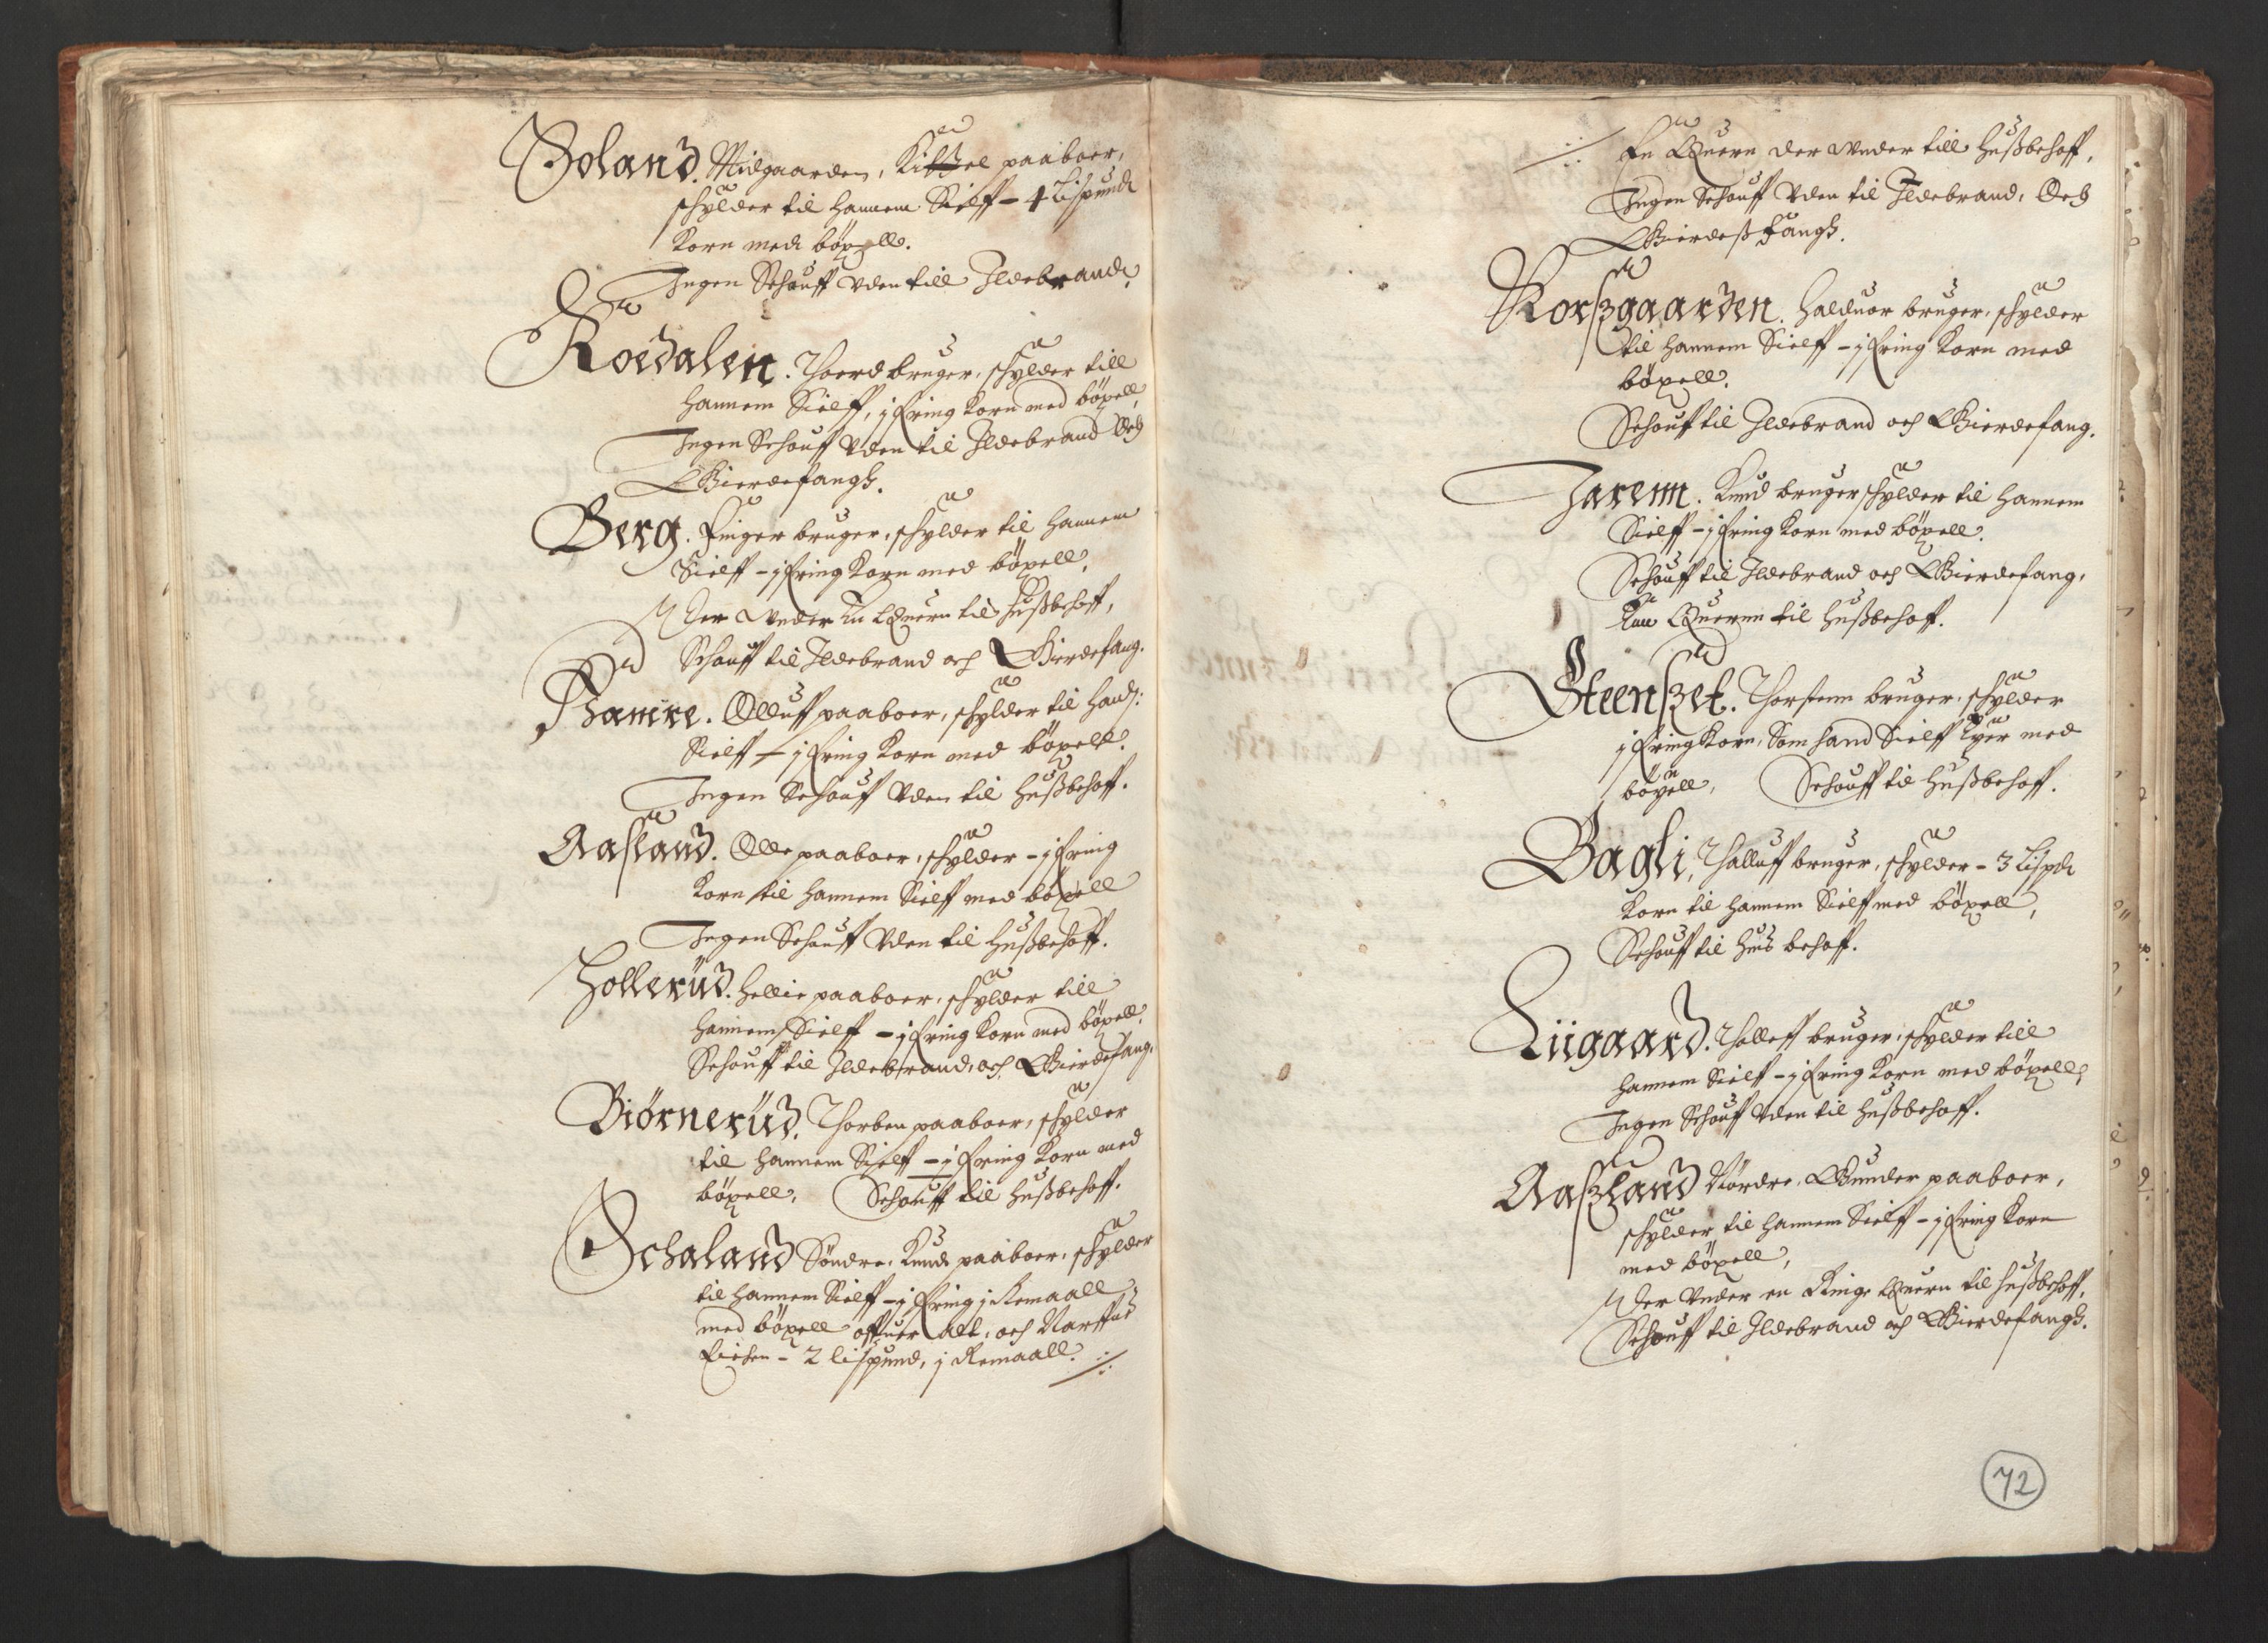 Boland. Midgaarden, Kittel paaboer,
schylder til hannem Sielff – 4 Lispund
Korn med böxell.
Ingen Schouff Vden till Ildebrand.
Roedalen. Thoerd bruger, schylder till
hannem Sielff, j fring Korn med böxell,
Ingen Schouff Vden til Ildebrand Och
Gierdefangh.
Berg. Finger bruger, schylder til hannem
Sielff – j fring Korn med böxell.
Der Vnder En Quern til Hußbehoff,
Schouff til Ildebrand och Gierdefang.
Olluff paaboer, schylder til hand:
Sielff – j fring Korn med böxell.
Ingen Schouff Vden til Hußbehoff.
Aasland. Olle paaboer, schylder – j fring
Korn til hannem Sielff med böxell
Ingen Schouff Vden til Hußbehoff.
Hollerud. Hellie paaboer, schylder till
hannem Sielff – j fring Korn med böxell.
Schouff til Ildebrand, och Gierdefang.
Biørnerud. Thorben paaboer, schylder
til hannem Sielff – j fring Korn med
böxell, Schouff til Hußbehoff.
Schaland Söndre. Knud paaboer, schylder
til hannem Sielff – j fring j Remaall
med böxell offuer alt, och
– 2 lispund, j Remaall. ./.
./. En Quern der Vnder till Hußbehoff,
Ingen Schouff Vden til Ildebrand, Och
Gierdeßfangh.
Korßgaarden. Halduor bruger, schylder
til hannem Sielff – j fring Korn med
böxell.
Schouff til Ildebrand och Gierdefang.
Jarem. Knud bruger schylder til hannem
Sielff – j fring Korn med böxell.
Schouff til Ildebrand och Gierdefang,
Quernn til Hußbehoff.
Steenßet. Thorstenn bruger, schylder
j fring Korn, Som hand Sielff Eyer med
böxell, Schouff til Hußbehoff.
Bagli, Thalluff bruger, schylder – 3 Lispd
Korn til hannem Sielff med böxell,
Schouff til Hus behoff.
Liigaard. Tholleff bruger, schylder till
hannem Sielff – j fring Korn med böxell,
Ingen Schouff Vden til Hußbehoff.
Aaßland Nordre. Gunder paaboer,
schylder til hannem Sielff – j fring Korn
med böxell,
Der Vnder en Ringe Quern til Hußbehoff,
Schouff til Ildebrand och Gierdefangh.
72